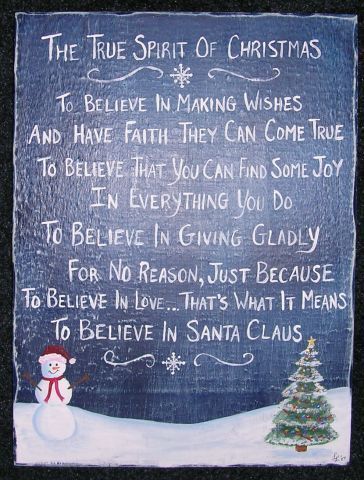 The True Spirit Of Christmas
To Believe In Making Wishes
And Have Faith They Can Come True
To Believe That You Can Find Some Joy
In Everything You Do
To Believe In Giving Gladly
For No Reason, Just Because
To Believe In Love...That's What It Means
To Believe In Santa Claus